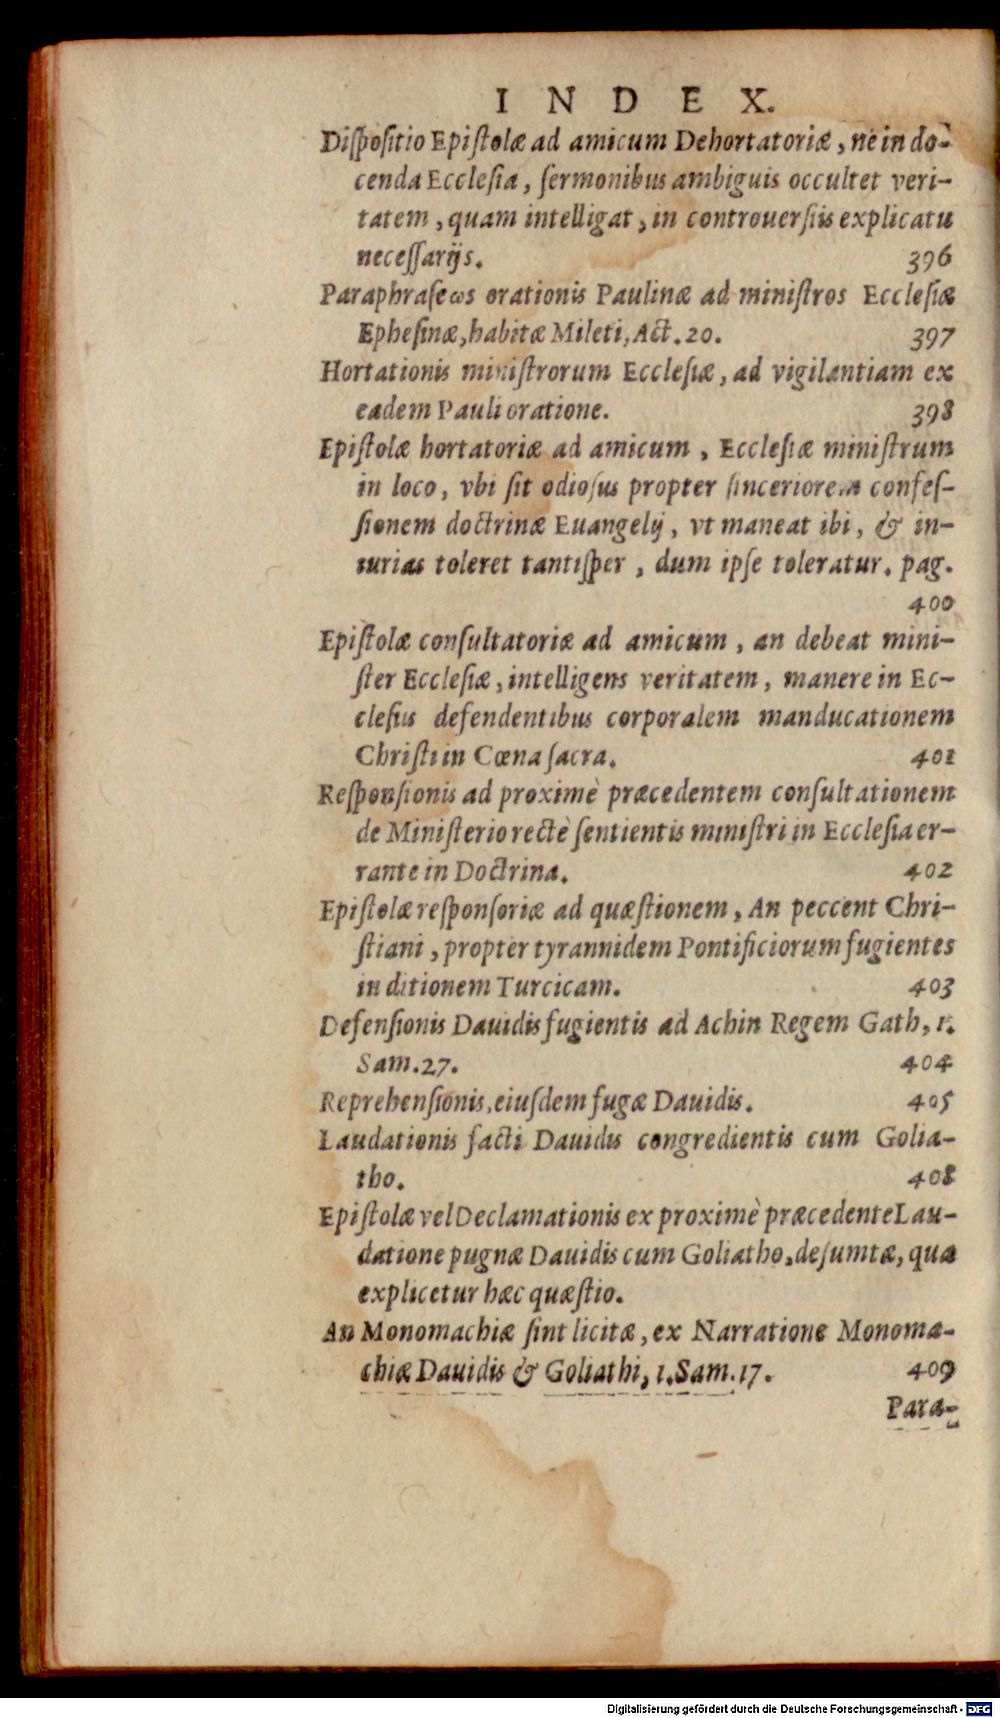 INDEX.
Diſpoſitio Epiſtolæ ad amicum Dehortatoriæ, ne in do-
cenda Eccleſia, ſermonibus ambiguis occultet veri-
tatem, quam intelligat, in controuerſiis explicatu
neceſſarijs. 396
Paraphraſeωs orationis Paulinæ ad miniſtros Eccleſiæ
Epheſinæ, habitæ Mileti, Act. 20. 397
Hortationis miniſtrorum Eccleſiæ, ad vigilantiam ex
eadem Pauli oratione. 398
Epiſtolæ hortatoriæ ad amicum, Eccleſiæ miniſtrum
in loco, vbi ſit odioſus propter ſinceriorem confeſ-
ſionem doctrinæ Euangelij, vt maneat ibi, & in-
iurias toleret tantiſper, dum ipſe toleratur. pag.
400
Epiſtolæ conſultatoriæ ad amicum, an debeat mini-
ſter Eccleſiæ, intelligens veritatem, manere in Ec-
cleſiis defendentibus corporalem manducationem
Chriſti in Cœna ſacra. 401
Reſponſionis ad proximè præcedentem conſultationem
de Miniſterio rectè ſentientis miniſtri in Eccleſia er-
rante in Doctrina. 402
Epiſtolæ reſponſoriæ ad quæſtionem, An peccent Chri-
ſtiani, propter tyrannidem Pontificiorum fugientes
in ditionem Turcicam. 403
Defenſionis Dauidis fugientis ad Achin Regem Gath, 1.
Sam. 27. 404
Reprehenſionis, eiuſdem fugæ Dauidis. 405
Laudationis facti Dauidis congredientis cum Golia-
tho. 408
Epiſtolæ vel Declamationis ex proximè præcedente Lau-
datione pugnæ Dauidis cum Goliatho, deſumtæ, qua
explicetur hæc quæſtio.
An Monomachiæ ſint licitæ, ex Narratione Monoma-
chiæ Dauidis & Goliathi, 1. Sam. 17. 409
Para-
Digitalisierung gefördert durch die Deutsche Forschungsgemeinschaft - DFG